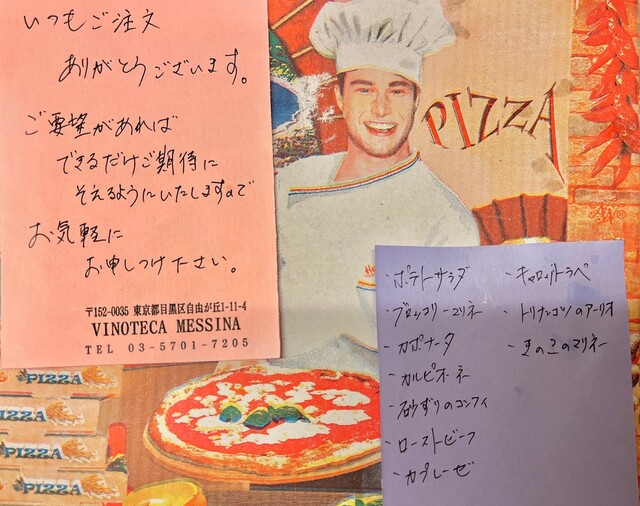 いつもご注文
ありがとうございます。
ご要望があれば
できるだけご期待に
そえるようにいたしますので
お気軽に
お申しつけ下さい。
〒152-0035 東京都目黒区自由が丘1-11-4
VINOTECA MESSINA
TEL 03-5701-7205
PIZZA
・ポテトサラダ
・ブロッコリーマリネ
・カポナータ
・カルピオーネ
・砂ずりのコンフィ
・ローストビーフ
・カプレーゼ
・キャロットラペ
・トリナンコツのアーリオ
・きのこのマリネ
PIZZA
PIZZA
PIZZA
PIZZA
PIZZA